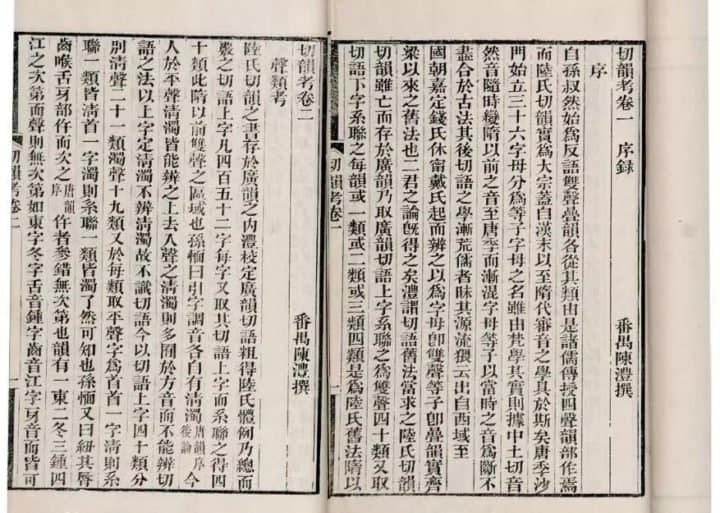 切韻考卷一 序錄
番禺陳澧撰
序
自孫叔然始爲反語雙聲疊韻各從其類由是諸儒傳授四聲韻部作焉
而陸氏切韻實爲大宗蓋自漢末以至隋代審音之學具於斯矣唐季沙
門始立三十六字母分爲等子字母之名雖由梵學其實則據中土切音
然音隨時變隋以前之音至唐季而漸混字母等子以當時之音爲斷不
盡合於古法其後切語之學漸荒儒者昧其源流猥云出自西域至
國朝嘉定錢氏休甯戴氏起而辨之以爲字母卽雙聲等子卽疊韻實齊
梁以來之舊法也二君之論旣得之矣澧謂切語舊法當求之陸氏切韻
切韻雖亡而存於廣韻乃取廣韻切語上字系聯之爲雙聲四十類又取
切語下字系聯之每韻或一類或二類或三類四類是爲陸氏舊法隋以
切韻考卷一
切韻考卷二
番禺陳澧撰
聲類考
陸氏切韻之書存於廣韻之內澧校定廣韻切語粗得陸氏體例乃總而
覈之切語上字凡四百五十二字每字又取其切語上字而系聯之得四
十類此隋以前雙聲之區域也孫愐曰引字調音各自有清濁唐韻序後論今
人於平聲清濁皆能辨之上去入聲之清濁則多囿於方音而不能辨切
語之法以上字定清濁不辨清濁故不識切語今以切語上字四十類分
別清聲二十一類濁聲十九類又於每類取平聲字爲首首一字清則系
聯一類皆清首一字濁則系聯一類皆濁了然可知也孫愐又曰紐其脣
齒喉舌牙部仵而次之唐韻序仵者參錯無次第也韻有一東二冬三鍾四
江之次第而聲則無次第如東字冬字舌音鍾字齒音江字牙音而皆可
切韻考卷二
一